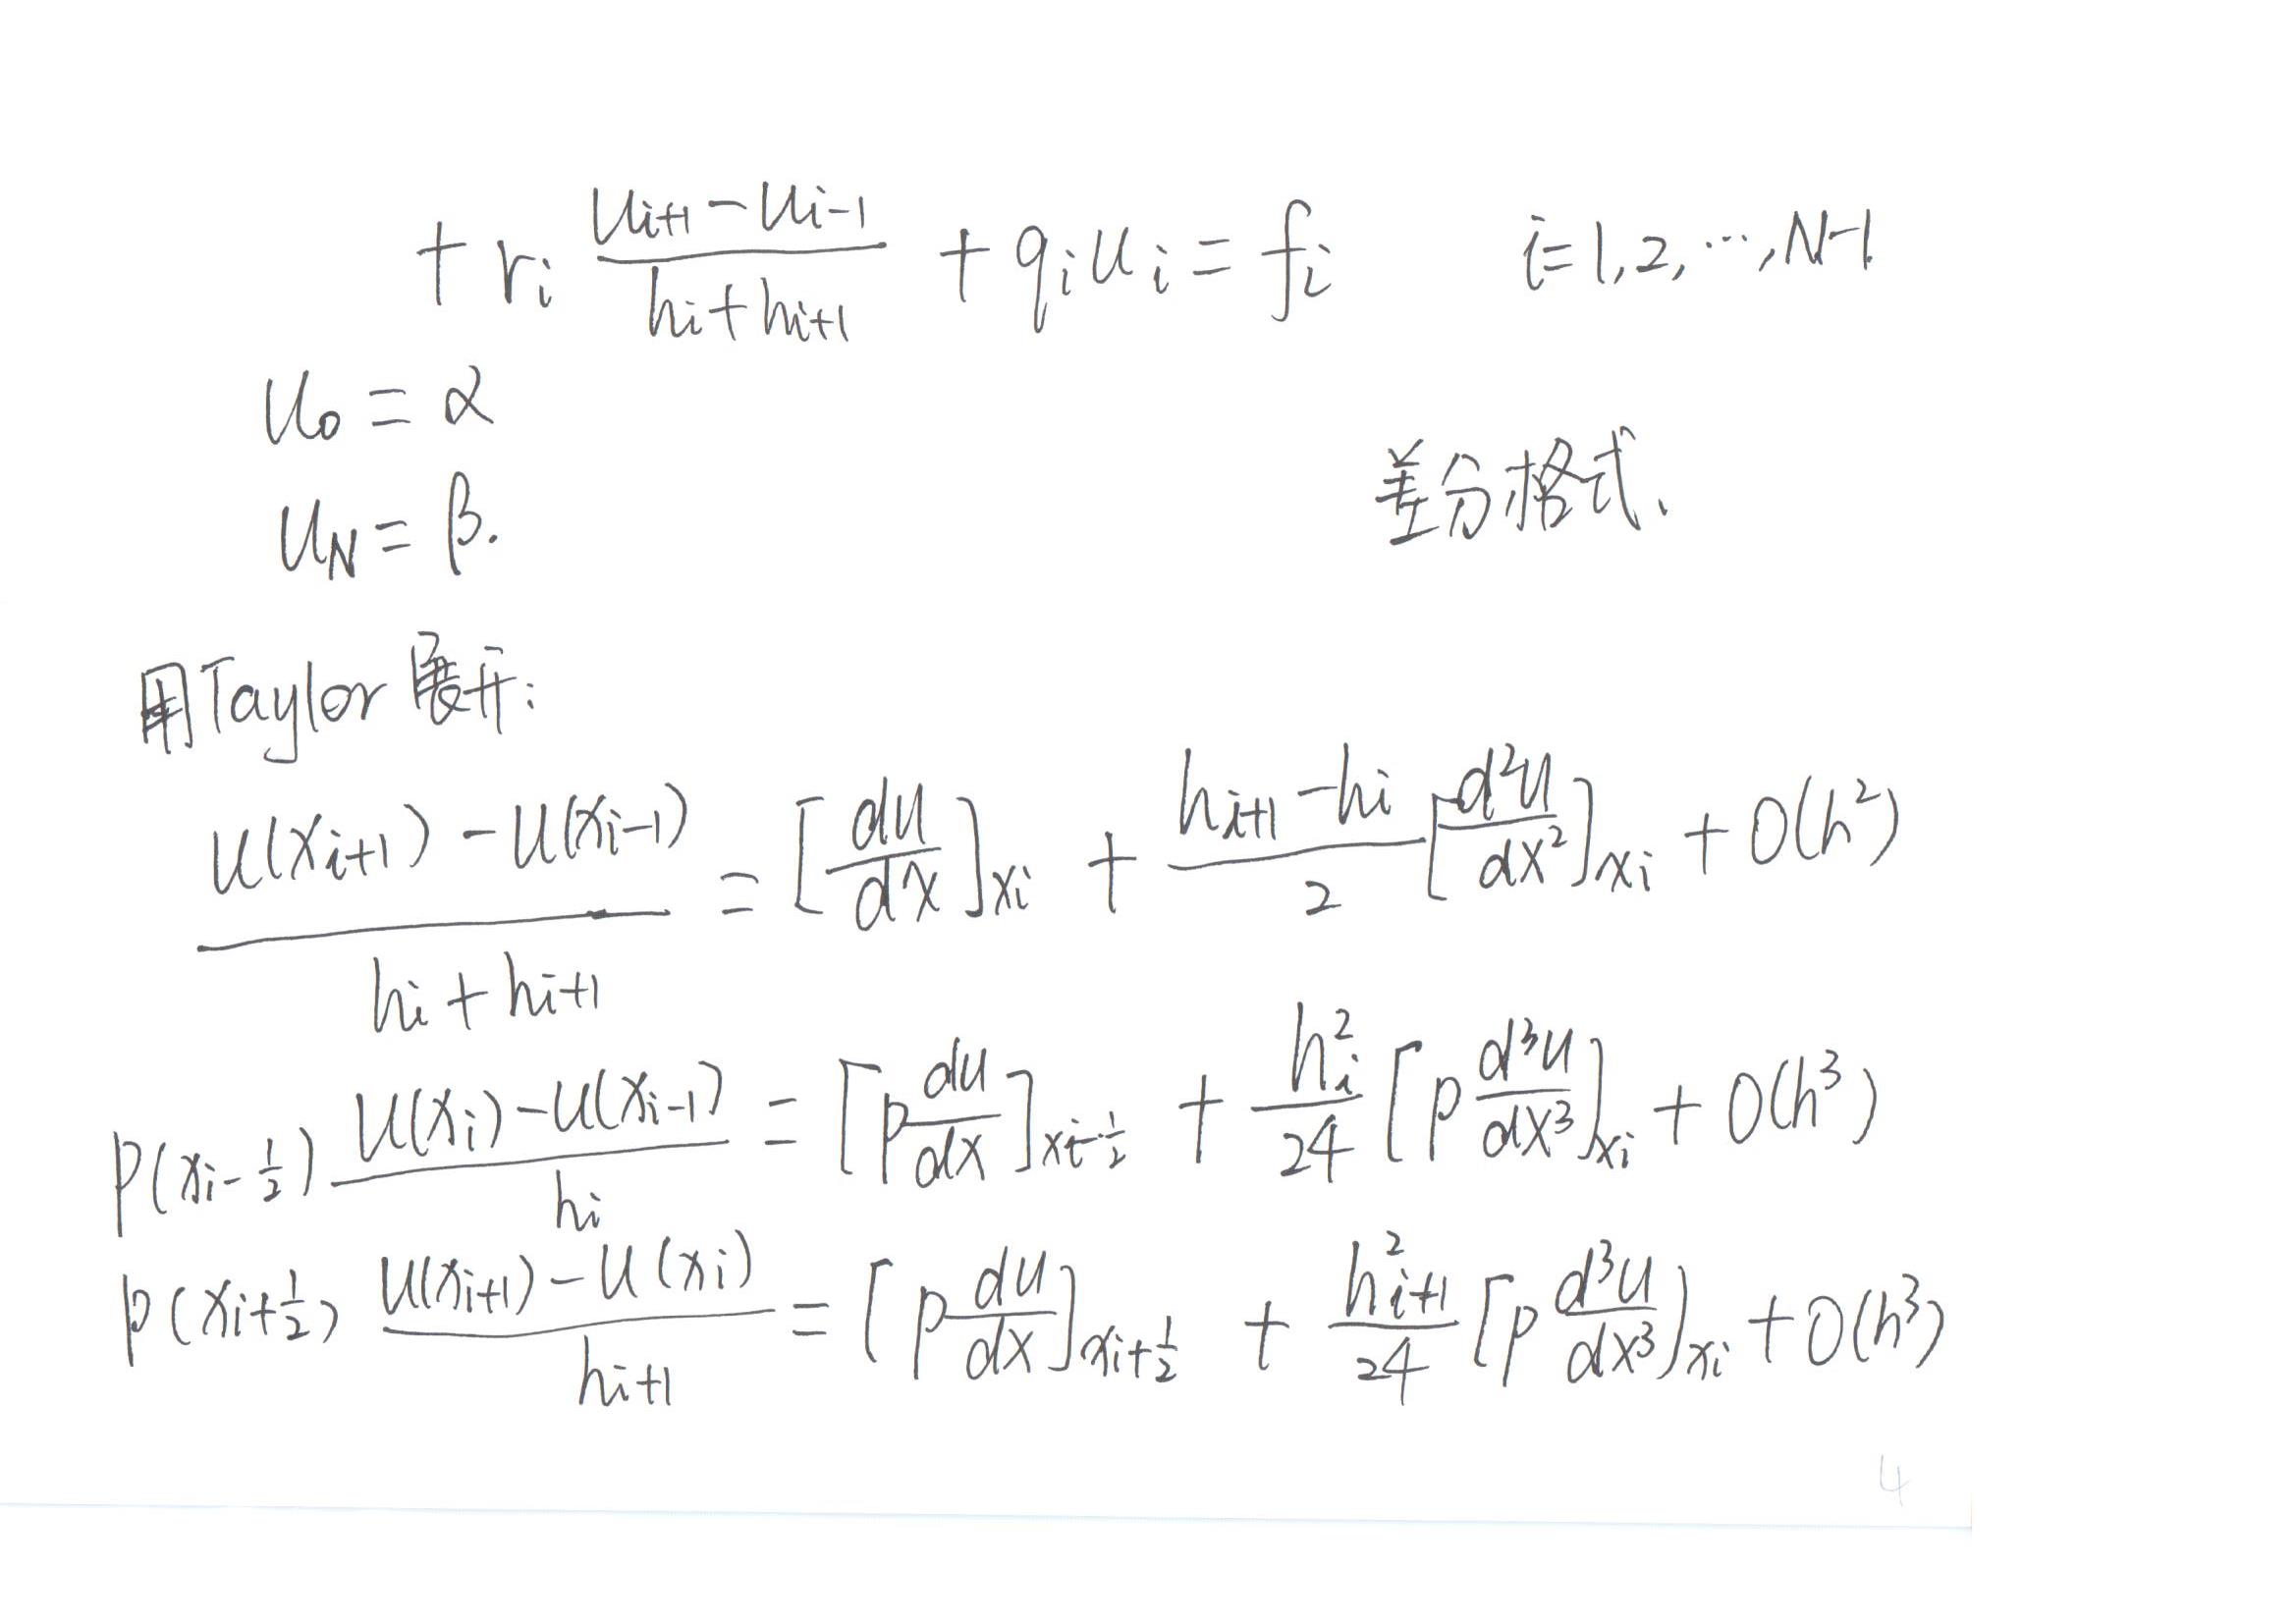 + r_i \frac{u_{i+1} - u_{i-1}}{h_i + h_{i+1}} + q_i u_i = f_i    i=1,2,⋯,N-1.
u_0 = α
u_N = β.
差分格式.
用Taylor展开:
\frac{u(x_{i+1}) - u(x_{i-1})}{h_i + h_{i+1}} = [\frac{du}{dx}]_{x_i} + \frac{h_{i+1} - h_i}{2} [\frac{d^2u}{dx^2}]_{x_i} + O(h^2)
p(x_{i-\frac{1}{2}}) \frac{u(x_i) - u(x_{i-1})}{h_i} = [p\frac{du}{dx}]_{x_{i-\frac{1}{2}}} + \frac{h_i^2}{24} [p\frac{d^3u}{dx^3}]_{x_i} + O(h^3)
p(x_{i+\frac{1}{2}}) \frac{u(x_{i+1}) - u(x_i)}{h_{i+1}} = [p\frac{du}{dx}]_{x_{i+\frac{1}{2}}} + \frac{h_{i+1}^2}{24} [p\frac{d^3u}{dx^3}]_{x_i} + O(h^3)
4